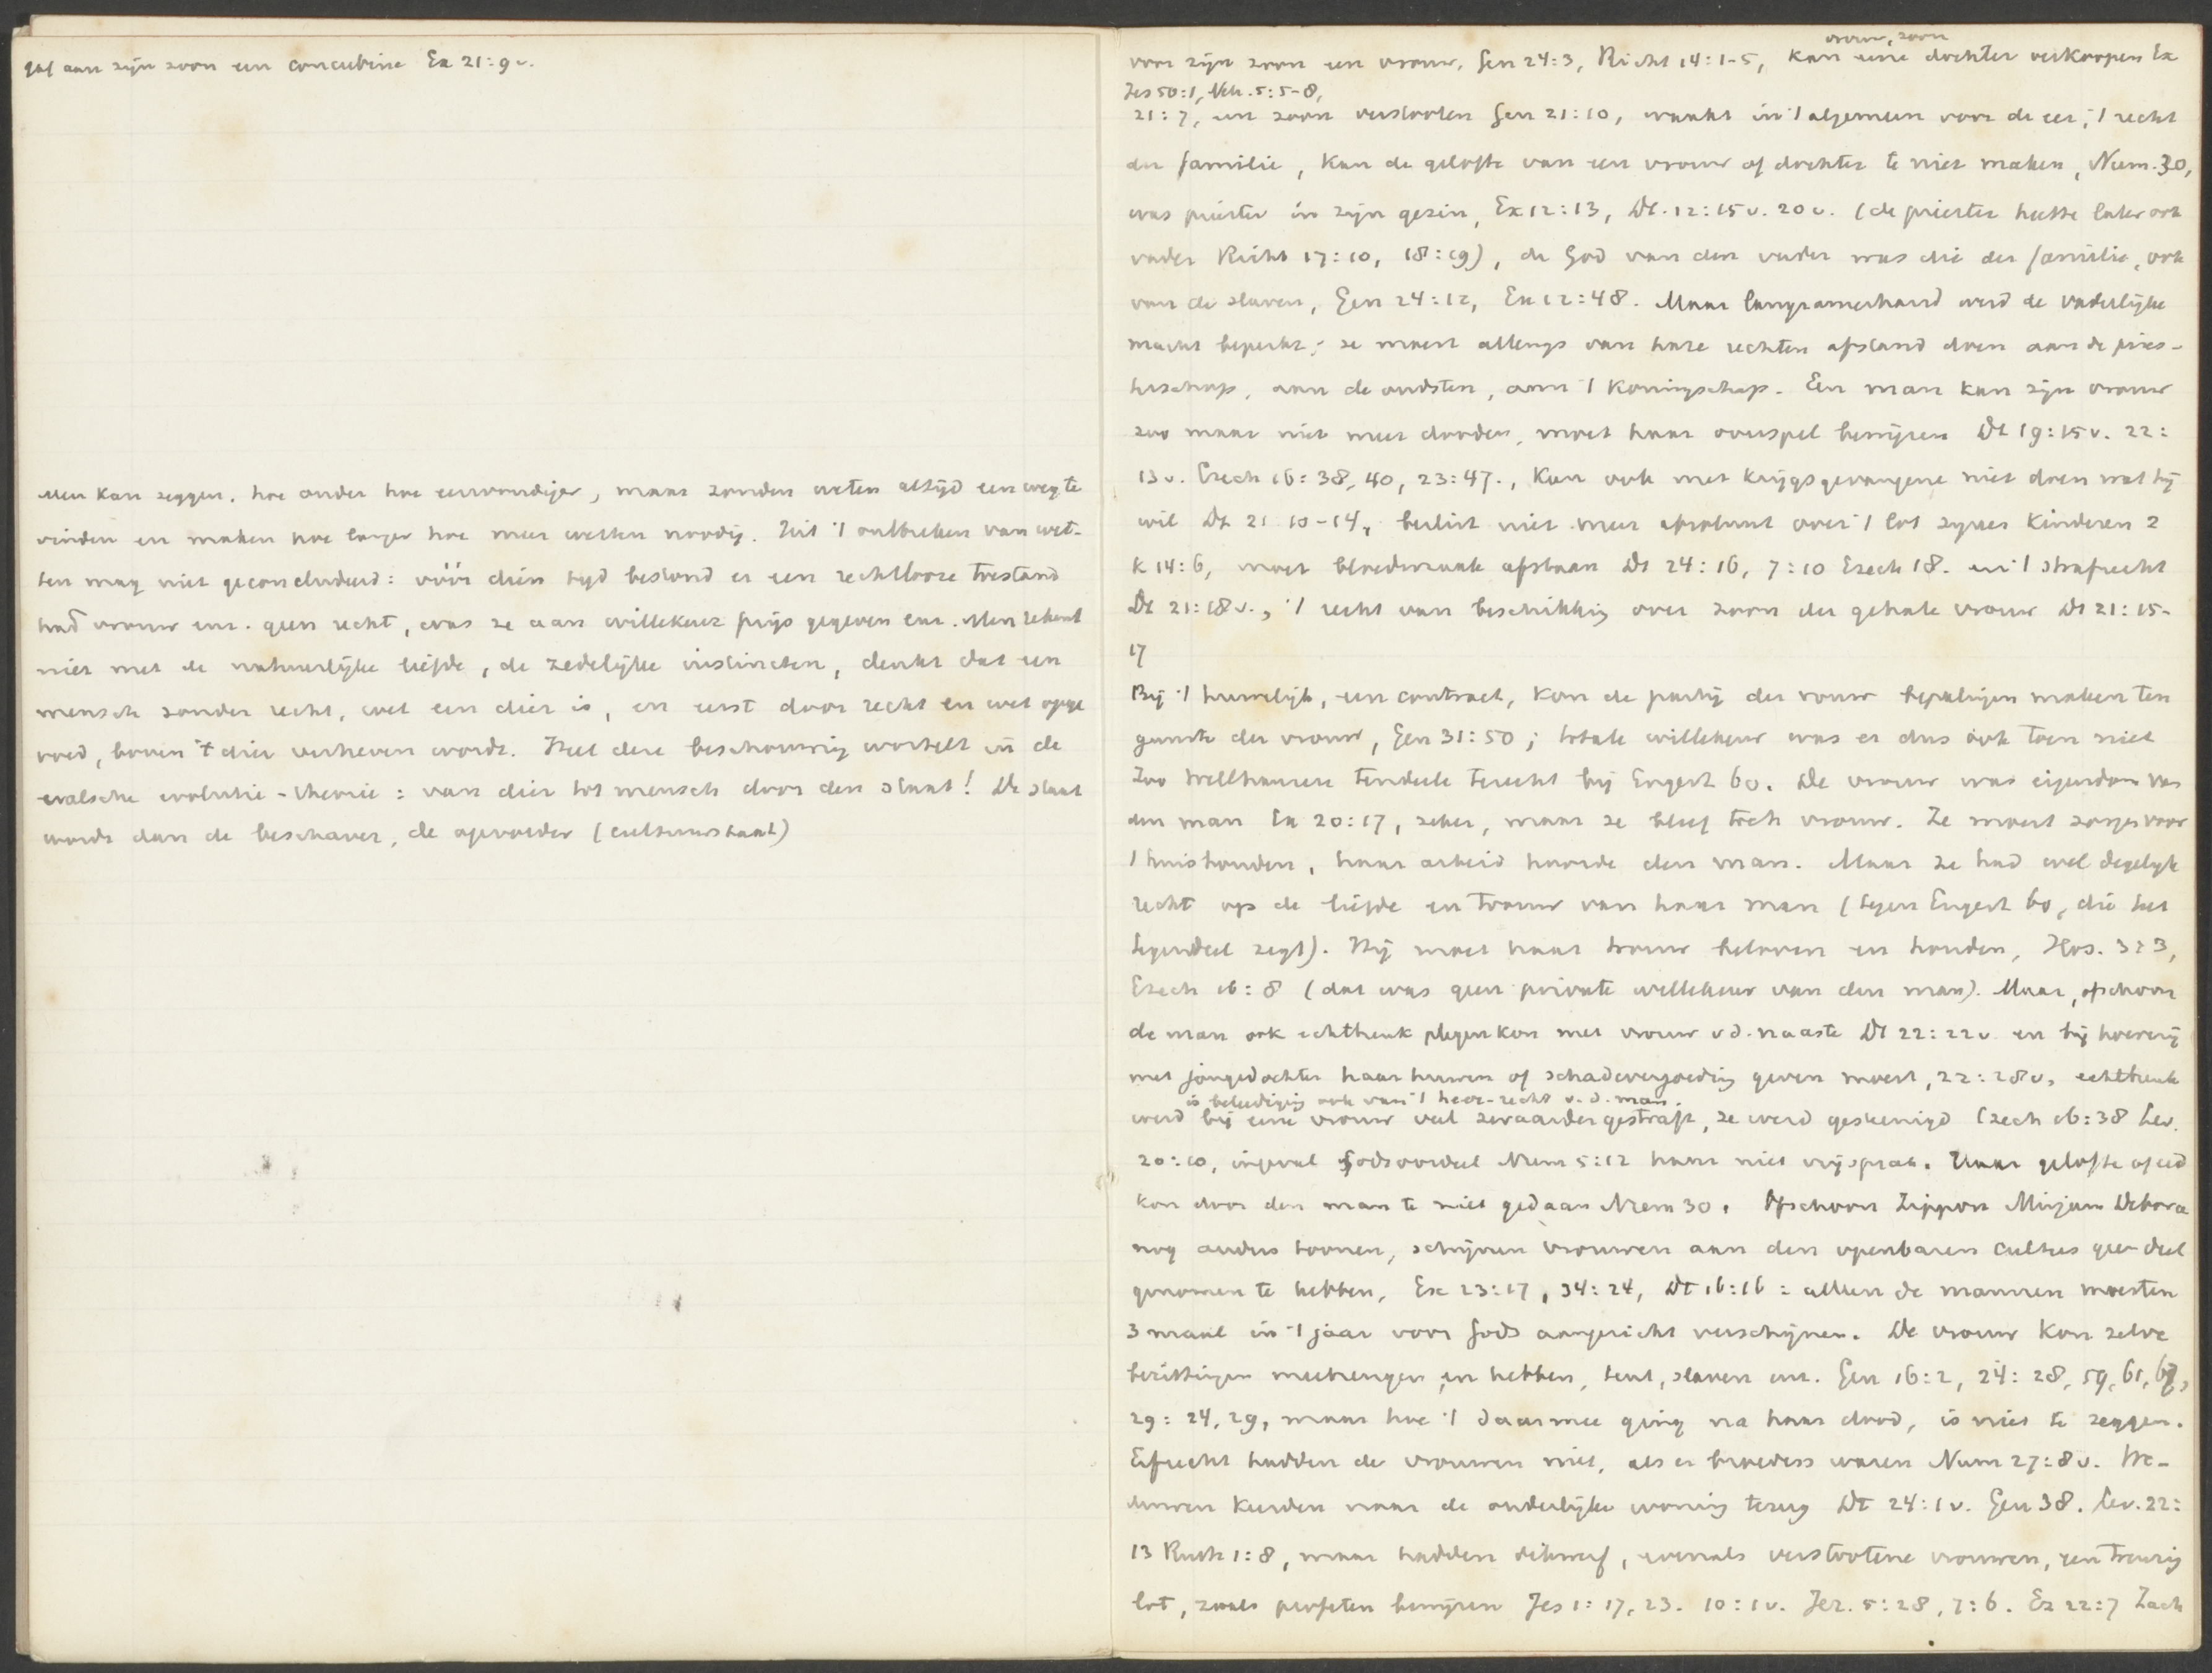 gaf aan zijn zoon een concubine Ex 21:9v.
Men kan zeggen, hoe ouder hoe eenvoudiger, maar zonder weten altijd een weg te
vinden en maken hoe langer hoe meer wetten noodig. Uit 't ontbreken van wet-
ten mag niet geconcludeerd: vóór dien tijd bestond er een rechtlooze toestand
had vrouw enz. geen recht, was ze aan willekeur prijs gegeven enz. Men rekent
niet met de natuurlijke liefde, de zedelijke instincten, denkt dat een
mensch zonder recht, wet een dier is, en eerst door recht en wet opge
voed, boven 't dier verheven wordt. Heel deze beschouwing wortelt in de
valsche evolutie-theorie: van dier tot mensch door den staat! De staat
wordt dan de beschaver, de opvoeder (cultuurstaat)
vrouw, zoon
voor zijn zoon een vrouw, Gen 24:3, Richt 14:1-5, kan eene dochter verkoopen Ex
Jes 50:1, Neh. 5:5-8,
21:7, een zoon verstooten Gen 21:10, waakt in 't algemeen voor de eer, 't recht
der familie, kan de gelofte van een vrouw of dochter te niet maken, Num. 30,
was priester in zijn gezin, Ex 12:13, Dt. 12:15v. 20v. (de priester heette later ook
vader Richt 17:10, 18:19), de God van den vader was die der familie, ook
van de slaven, Gen 24:12, Ex 12:48. Maar langzamerhand werd de vaderlijke
macht beperkt; ze moest allengs van hare rechten afstand doen aan de pries-
terschap, aan de oudsten, aan 't koningschap. Een man kan zijn vrouw
zoo maar niet meer dooden, moet haar overspel bewijzen Dt 19:15v. 22:
13v. Ezech 16:38, 40, 23:47., kan ook met krijgsgevangene niet doen wat hij
wil Dt 21 10-14, beslist niet meer absoluut over 't lot zijner kinderen 2
K 14:6, moet bloedwraak afstaan Dt 24:16, 7:10 Ezech 18. en 't strafrecht
Dt 21:18v., 't recht van beschikking over zoon der gehate vrouw Dt 21:15-
17
Bij 't huwelijk, een contract, kon de partij der vrouw bepalingen maken ten
gunste der vrouw, Gen 31:50; totale willekeur was er dus ook toen niet
Zoo Wellhausen tendeele terecht bij Engert 60. De vrouw was eigendom van
den man Ex 20:17, zeker, maar ze bleef toch vrouw. Ze moest zorgen voor
't huishouden, haar arbeid hoorde den man. Maar ze had wel degelijk
recht op de liefde en trouw van haar man (tegen Engert 60, die het
tegendeel zegt). Hij moet haar trouw beloven en houden, Hos. 3:3,
Ezech 16:8 (dat was geen private willekeur van den man). Maar, ofschoon
de man ook echtbreuk plegen kon met vrouw v d. naaste Dt 22:22v en bij hoererij
met jongedochter haar huwen of schadevergoeding geven moest, 22:28v, echtbreuk
is beleediging ook van 't heer-recht v. d. man.
werd bij eene vrouw veel zwaarder gestraft, ze werd gesteenigd Ezech 16:38 Lev.
20:10, ingeval Godsoordeel Num 5:12 haar niet vrijsprak. Haar gelofte of eed
kon door den man te niet gedaan Num 30. Ofschoon Zippora Mirjam Debora
nog anders toonen, schijnen vrouwen aan den openbaren cultus geen deel
genomen te hebben, Ex 23:17, 34:24, Dt 16:16: alleen de mannen moesten
3 maal in 't jaar voor Gods aangezicht verschijnen. De vrouw kon zelve
bezittingen meebrengen en hebben, tent, slaven enz. Gen 16:2, 24:28, 59, 61, 67,
29:24, 29, maar hoe 't daarmee ging na haar dood, is niet te zeggen.
Erfrecht hadden de vrouwen niet, als er broeders waren Num 27:8v. We-
duwen keerden naar de ouderlijke woning terug Dt 24:1v. Gen 38. Lev. 22:
13 Ruth 1:8, maar hadden dikwerf, evenals verstootene vrouwen, een treurig
lot, zooals profeten bewijzen Jes 1:17, 23. 10:1v. Jer. 5:28, 7:6. Ez 22:7 Zach